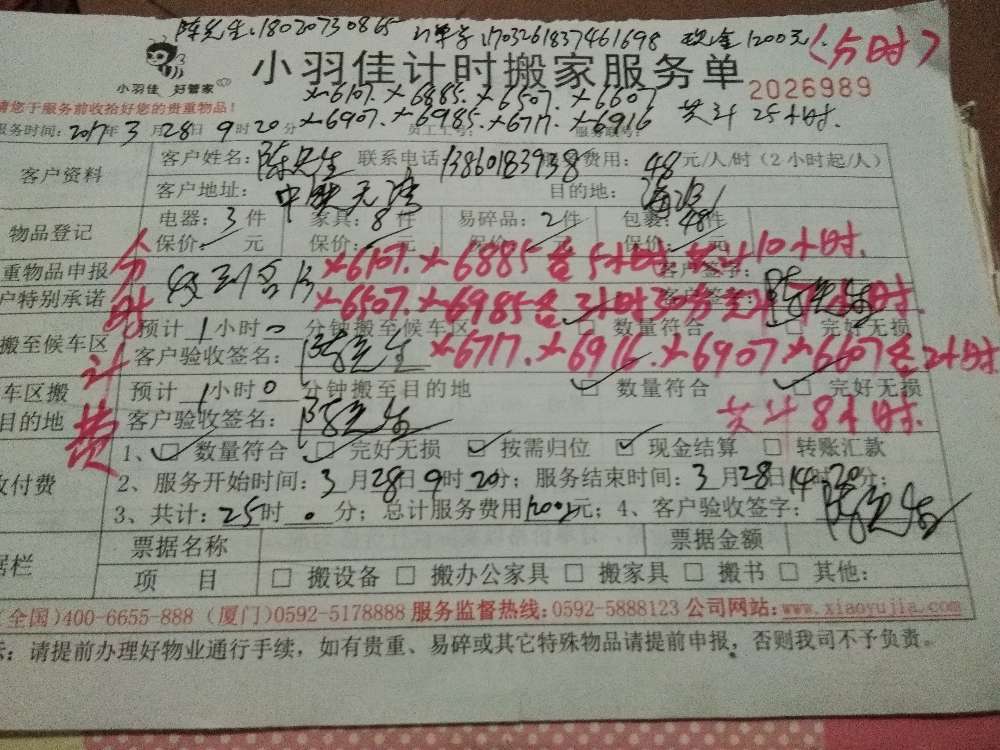 陈先生:18020730865 订单号:1703261837461698 现金1200元. (分时)
小羽佳 好管家
小羽佳计时搬家服务单
2026989
请您于服务前收拾好您的贵重物品!
x-6107. x-6885. x-6507. x-6607
服务时间:2017年3月28日9时20分 x-6907. x-6985. x-6717. x-6916 共计25小时.
客户资料
客户姓名:陈先生 联系电话:13860183938 费用:48元/人/时(2小时起/人)
客户地址: 目的地:
物品登记
电器:3件 家具:8件 易碎品:2件 包裹:48件
保价: 元 保价: 元 保价: 元 保价: 元
人分时计费
重物品申报 x-6107. x-6885各5小时 共计10小时. 客户签字:
户特别承诺 x-6507. x-6985各 2小时30分 客户签字:陈先生
搬至候车区 预计1小时0分钟搬至候车区 □ 数量符合 □ 完好无损
客户验收签名:陈先生 x-6717. x-6916. x-6907 x-6607各2小时
车区搬 预计1小时0分钟搬至目的地 □ 数量符合 □ 完好无损
目的地 客户验收签名:陈先生 共计8小时.
1、☑ 数量符合 ☑ 完好无损 ☑ 按需归位 ☑ 现金结算 □ 转账汇款
收付费 2、服务开始时间:3月28日9时20分;服务结束时间:3月28日14时20分;
3、共计:25时0分;总计服务费用1200元;4、客户验收签字:陈先生
票据名称 票据金额
据栏 项 目 □ 搬设备 □ 搬办公家具 □ 搬家具 □ 搬书 □ 其他:
(全国)400-6655-888 (厦门)0592-5178888 服务监督热线:0592-5888123 公司网站:www.xiaoyujia.com
示:请提前办理好物业通行手续,如有贵重、易碎或其它特殊物品请提前申报,否则我司不予负责。